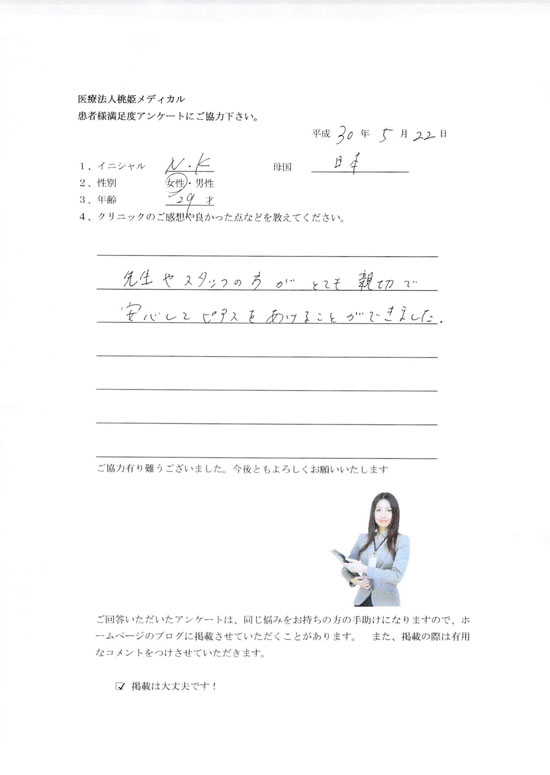 医療法人桃姫メディカル
患者様満足度アンケートにご協力下さい。
平成 30 年 5 月 22 日
1、イニシャル N・K 母国 日本
2、性別 女性・男性
3、年齢 29 才
4、クリニックのご感想や良かった点などを教えてください。
先生やスタッフの方がとても親切で
安心してピアスをあけることができました.
ご協力有り難うございました。今後ともよろしくお願いいたします
ご回答いただいたアンケートは、同じ悩みをお持ちの方の手助けになりますので、ホ
ームページのブログに掲載させていただくことがあります。 また、掲載の際は有用
なコメントをつけさせていただきます。
☑ 掲載は大丈夫です！